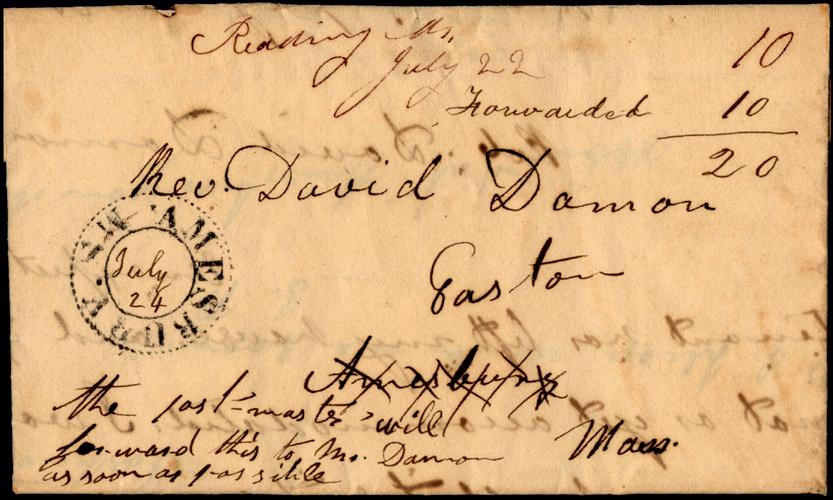 Reading Ms.
July 22
10
Forwarded 10
20
Rev. David Damon
Easton
Amesbury
Mass.
W. AMESBURY. MS
July
24
the post-master will
forward this to Mr. Damon
as soon as possible